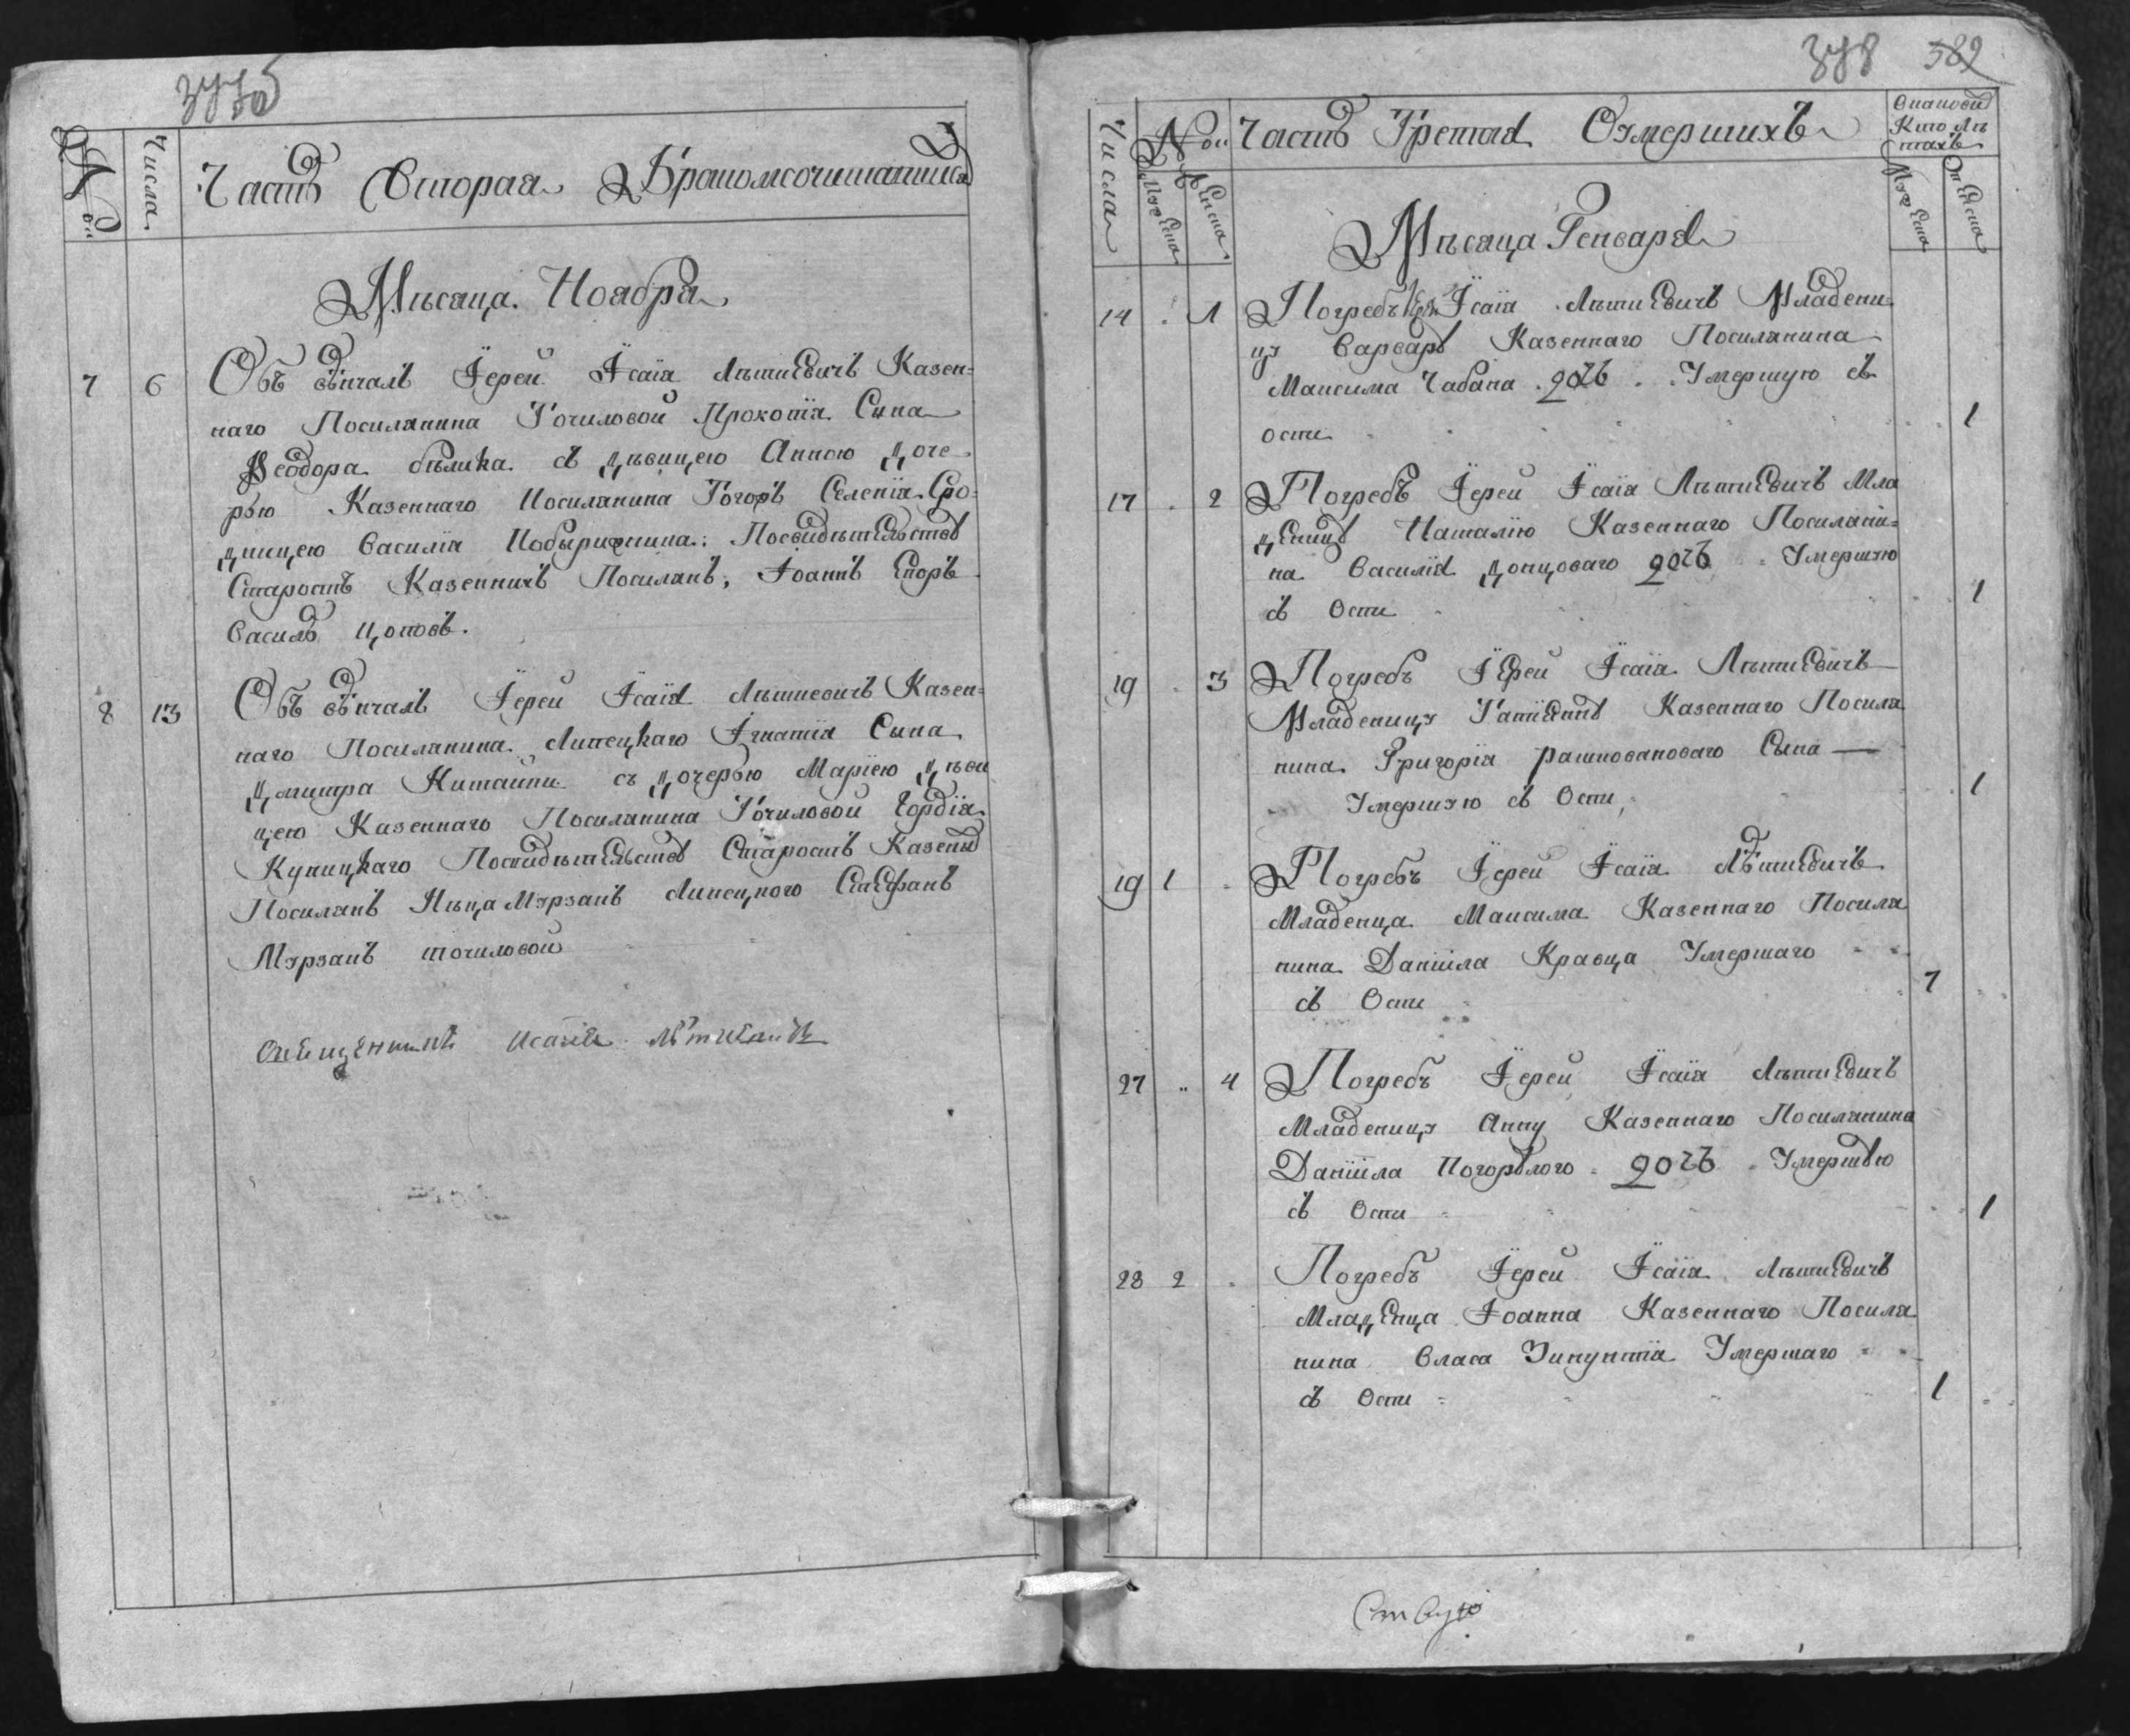 Числа
Часть Вторая Бракомсочитавшися
Мѣсяца Ноября
7 6 Объ вѣнчалъ Іерей Ісаіа Лѣтиевичъ Казен=
наго Посилянина Точиловой Прокопія Сына
Ѳеодора бѣлика съ Дѣвицею Анною Доче
рью Казеннаго Посилянина Тогожъ Селенія Сро=
дницею Василія
Старостъ Казеннихъ Посилянъ, Іоаннъ
Василь Цоповъ.
8 13 Объ вѣнчалъ Іерей Ісаія Лѣтиевичъ Казен=
наго Посилянина Липецкаго Ігнатія Сына
Димитра Китайпи съ Дочерью Маріею Дѣви
цею Казеннаго Посилянина Точиловой Гордія
Купицкаго Старостъ
Посилянъ Мѫрзакъ Липецкого Стефанъ
Мѫрзакъ точиловой
Священникъ Исаія Лѣтиевичъ
378 582
Числа
Часть Третая Оумершихъ
Мѣсяца Генваря
14 . 1 Погребъ Іерей Ісаіа Лѣтиевичъ Младени=
цу Варвару Казеннаго Посилянина
Максима Чабана дочь Умершую съ
оспи 1
17 . 2 Погребъ Іерей Ісаіа Лѣтиевичъ Мла
деницу Наталію Казеннаго Посиляни=
на Василія Донцоваго дочь Умершую
съ Оспи 1
19 . 3 Погребъ Іерей Ісаіа Лѣтиевичъ
Младеницу Казеннаго Посиля
нина Григорія рашковановаго Сына
Умершую съ Оспи 1
19 1 . Погребъ Іерей Ісаіа Лѣтиевичъ
Младенца Максима Казеннаго Посиля
нина Даніила Кравца Умершаго
съ Оспи 1
27 .. 4 Погребъ Іерей Ісаіа Лѣтиевичъ
Младеницу Анну Казеннаго Посилянина
Даніила Погорѣлого дочь Умершую
съ Оспи 1
28 2 . Погребъ Іерей Ісаіа Лѣтиевичъ
Младенца Іоанна Казеннаго Посиля
нина Власа Умершаго
съ Оспи 1